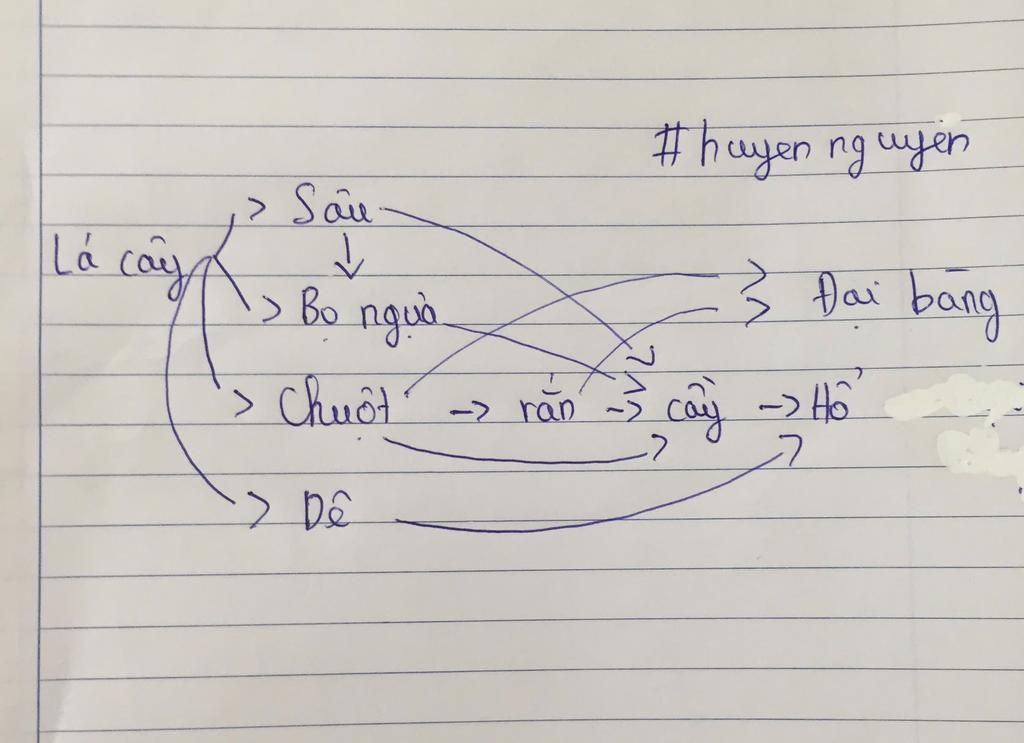 #huyen nguyen
> Sâu
Lá cây
↓
> Bọ ngựa
> Đại bàng
> Chuột -> rắn -> cầy -> Hổ
> Dê